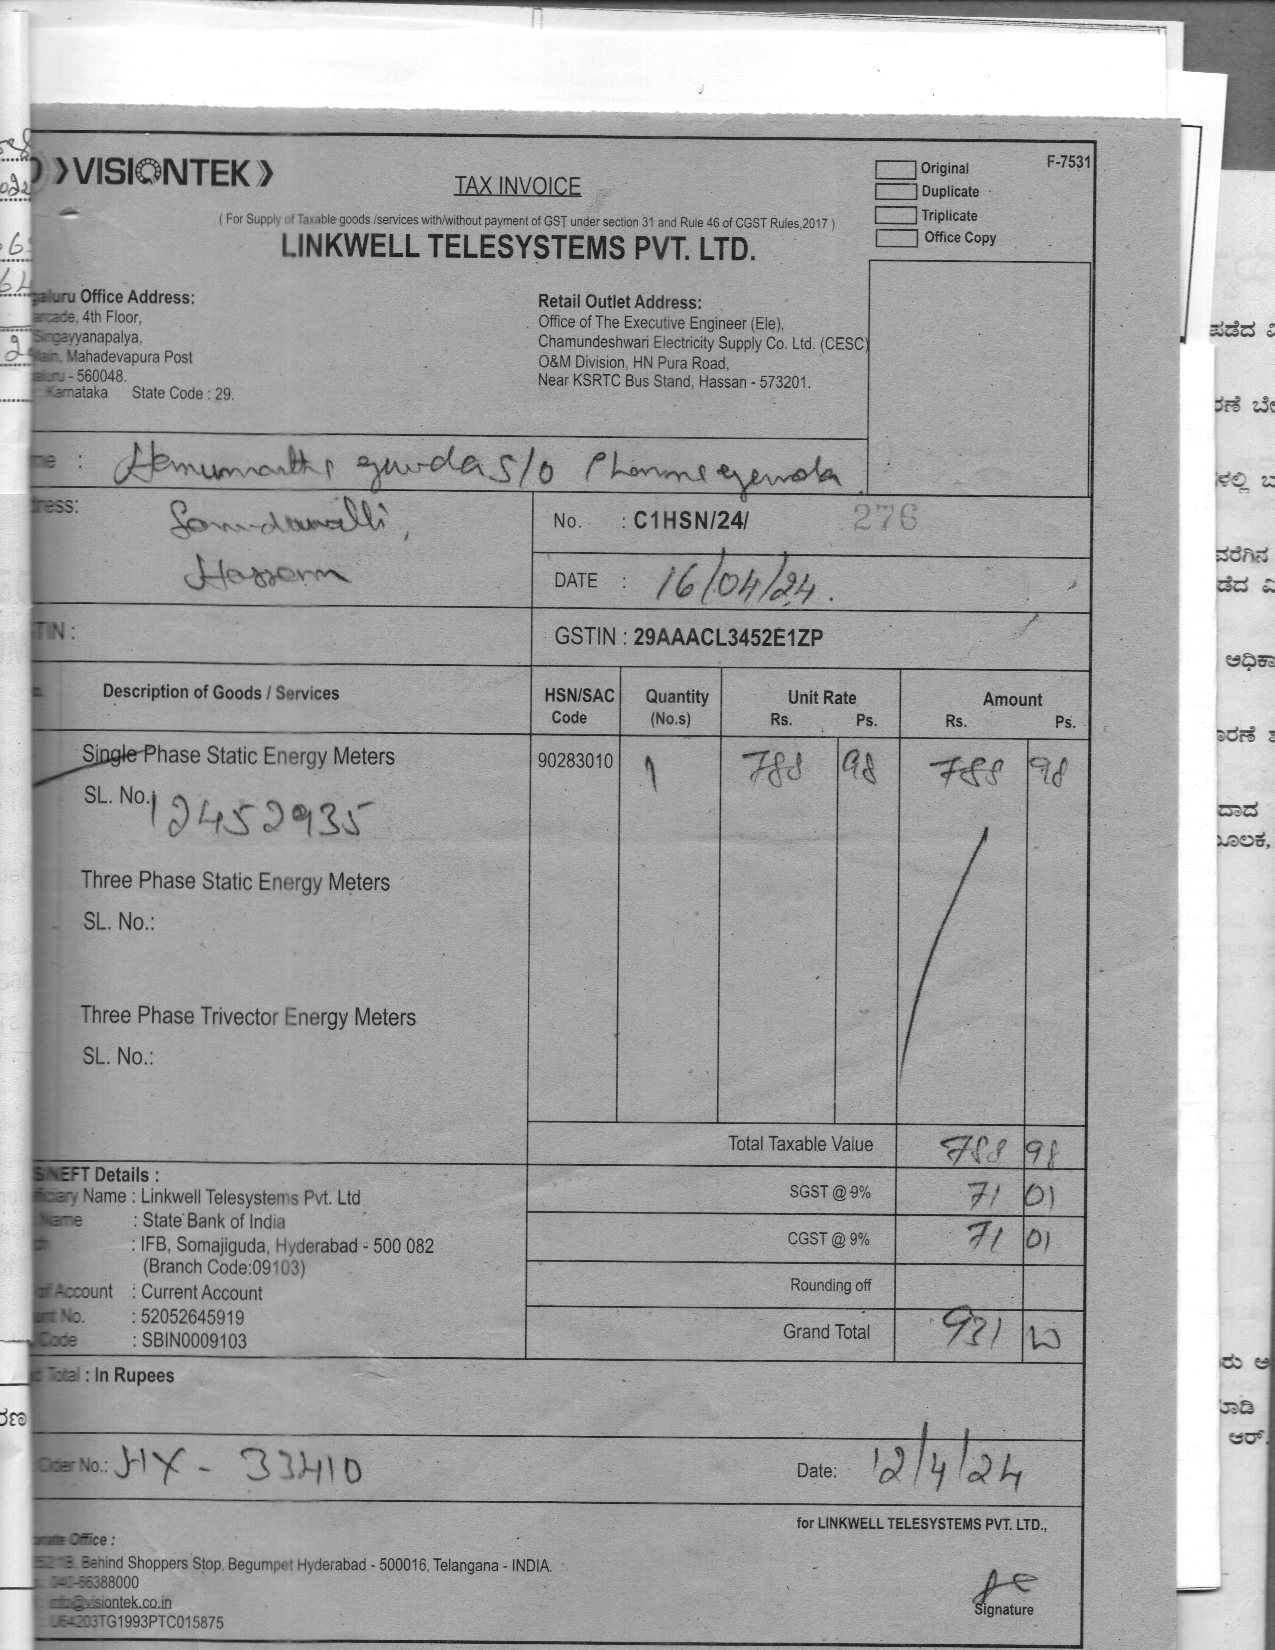 VISIONTEK
TAX INVOICE
Original
F-7531
Duplicate
Triplicate
Office Copy
( For Supply of Taxable goods /services with/without payment of GST under section 31 and Rule 46 of CGST Rules,2017 )
LINKWELL TELESYSTEMS PVT. LTD.
Office Address:
4th Floor,
Singayyanapalya,
Mahadevapura Post
- 560048.
Karnataka State Code : 29.
Retail Outlet Address:
Office of The Executive Engineer (Ele),
Chamundeshwari Electricity Supply Co. Ltd. (CESC)
O&M Division, HN Pura Road,
Near KSRTC Bus Stand, Hassan - 573201.
s/o
Hassan
No. : C1HSN/24/ 276
DATE : 16/04/24.
GSTIN : 29AAACL3452E1ZP
Description of Goods / Services HSN/SAC Code Quantity (No.s) Unit Rate Rs. Ps. Amount Rs. Ps.
Single Phase Static Energy Meters 90283010 1 788 98 788 98
SL. No. 12452935
Three Phase Static Energy Meters
SL. No.:
Three Phase Trivector Energy Meters
SL. No.:
Total Taxable Value 788 98
SGST @ 9% 71 01
CGST @ 9% 71 01
Rounding off
Grand Total 931
NEFT Details :
Name : Linkwell Telesystems Pvt. Ltd
Name : State Bank of India
: IFB, Somajiguda, Hyderabad - 500 082
(Branch Code:09103)
of Account : Current Account
No. : 52052645919
Code : SBIN0009103
Total : In Rupees
No.: HX - 33410 Date: 12/4/24
for LINKWELL TELESYSTEMS PVT. LTD.,
Office :
Behind Shoppers Stop, Begumpet Hyderabad - 500016, Telangana - INDIA.
040-66388000
info@visiontek.co.in
U64203TG1993PTC015875
Signature
ಪಡೆದ
ಅಧಿಕಾ